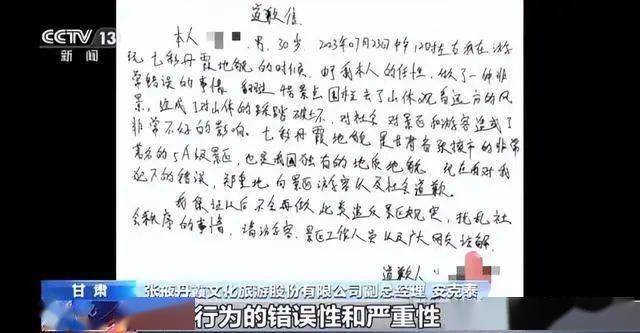 CCTV 13
新闻
道歉信
本人 男,30岁 2023年07月23日中午12时左右我在游
玩七彩丹霞地貌的时候,由于我本人的任性,做了一件非
常错误的事情 翻越 景点围栏去了山体观看远方的风
景,造成了对山体的踩踏破坏,对社会 对景区和游客造成了
非常不好的影响。七彩丹霞地貌 是甘肃省张掖市的非常
著名的5A级景区,也是我国独有的地质地貌 现在我对我
犯下的错误,郑重地向景区 游客以及社会道歉。
我保证以后不会再做此类违反景区规定,扰乱社
会秩序的事情,请游客、景区工作人员以及广大网友谅解
道歉人
甘肃
张掖丹霞文化旅游股份有限公司副总经理 安克泰
行为的错误性和严重性